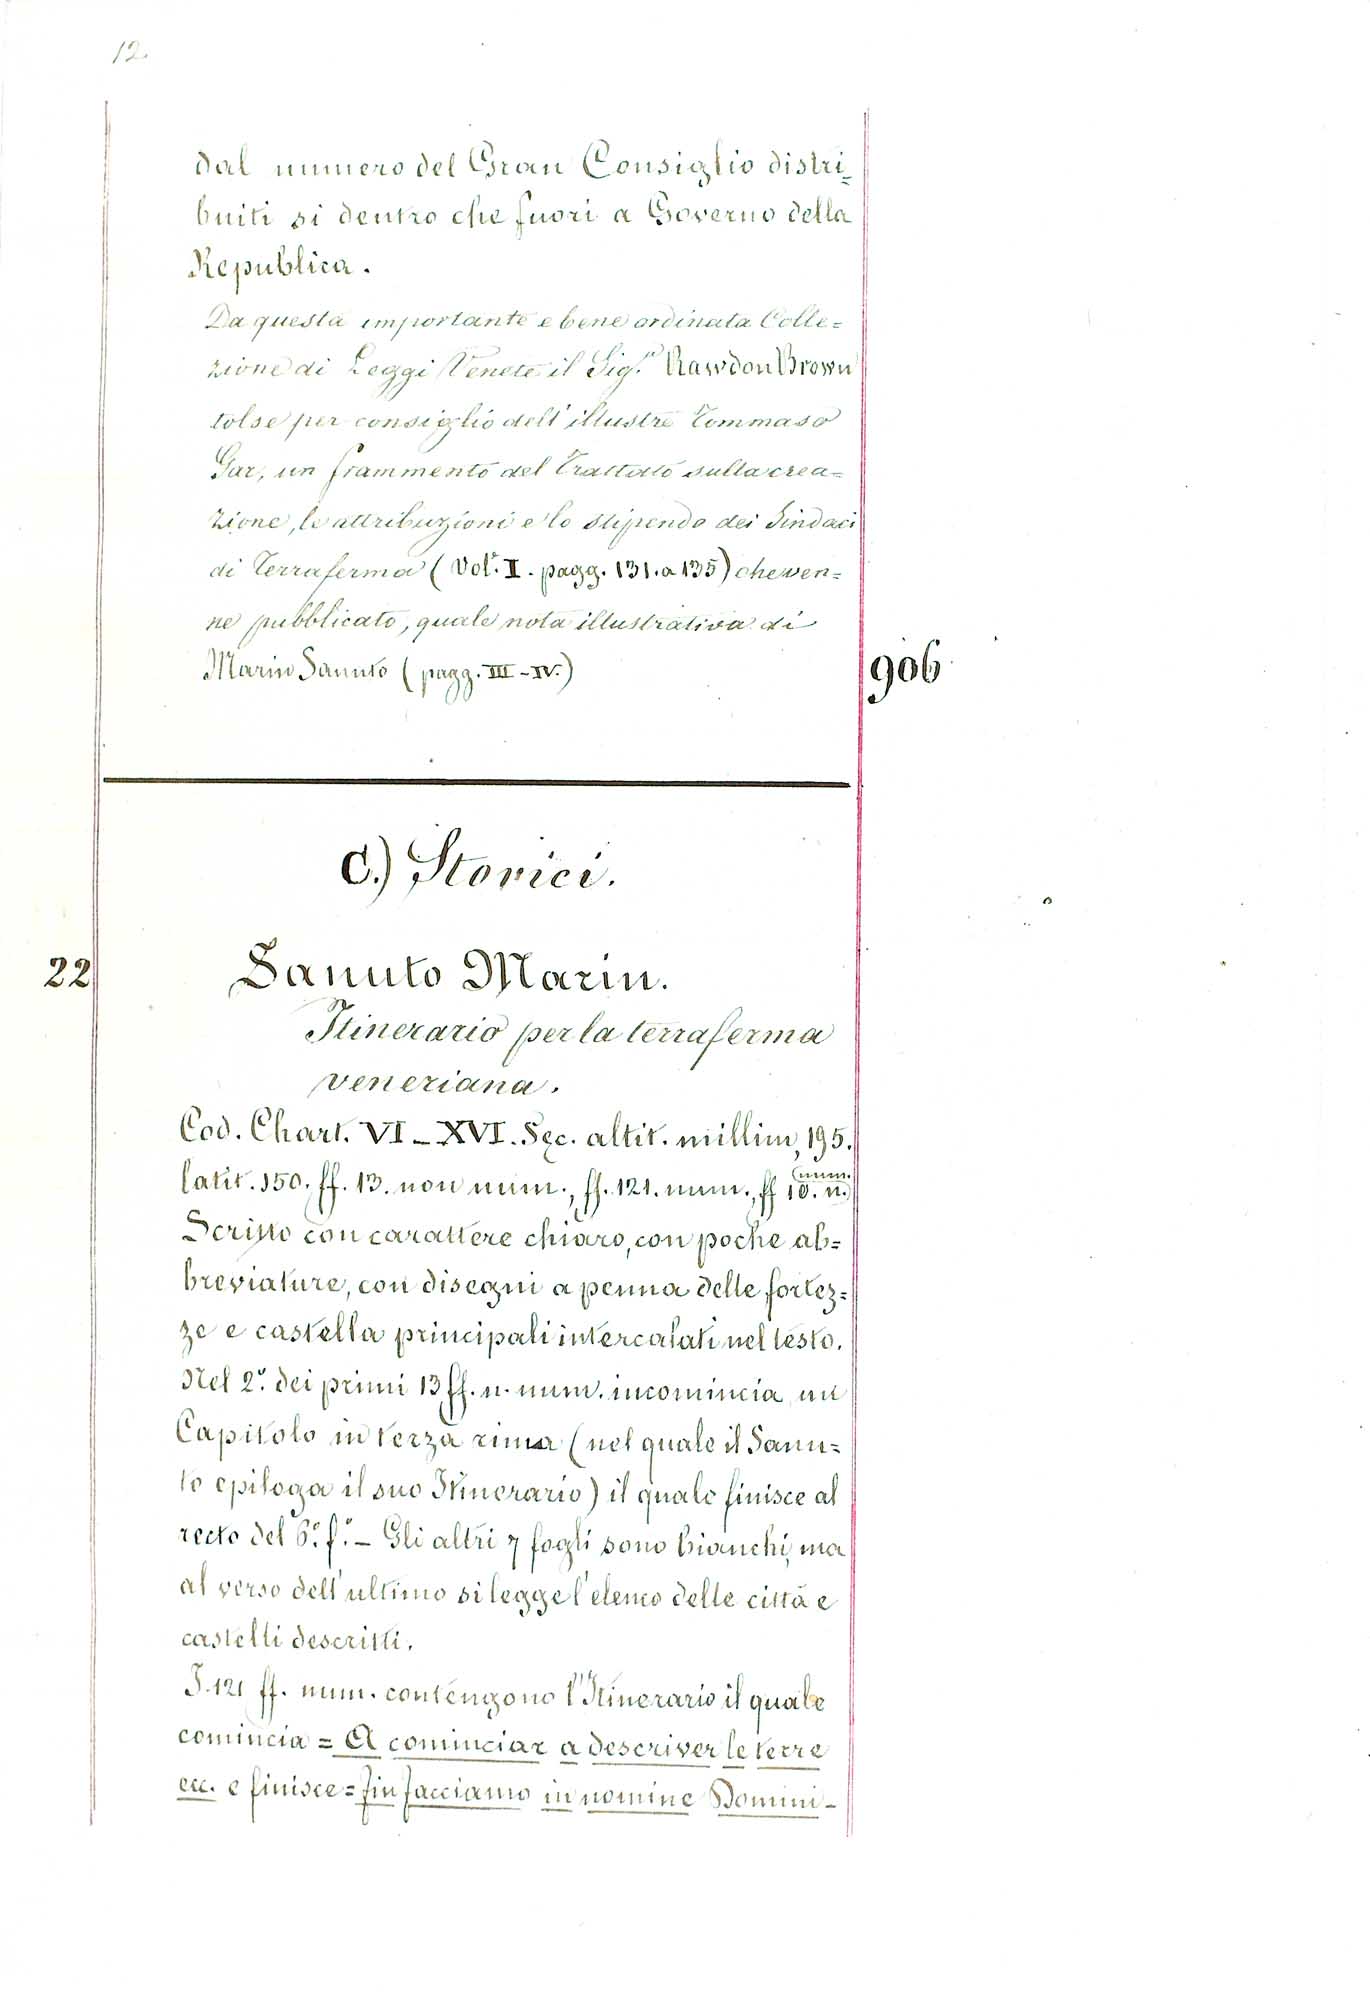 12.
dal numero del Gran Consiglio distri=
buiti si dentro che fuori a Governo della
Republica.
Da questa importante e bene ordinata Colle=
zione di Leggi Venete il Sig.r Rawdon Brown
tolse per consiglio dell'illustre Tommaso
Gar, un frammento del Trattato sulla crea=
zione, le attribuzioni e lo stipendo dei Sindaci
di Terraferma (Vol.e I. pagg. 131. a 135) che ven=
ne pubblicato, quale nota illustrativa di
Marin Sanuto (pagg. III - IV.)
906
C.) Storici.
22
Sanuto Marin.
Itinerario per la terraferma
veneziana.
Cod. Chart. VI - XVI. Sec. altit. millim, 195.
latit. 150. ff. 13. non num., ff. 121. num., ff 10. n. num.
Scritto con carattere chiaro, con poche ab=
breviature, con disegni a penna delle fortez=
ze e castella principali intercalati nel testo.
Nel 2.o dei primi 13 ff. n. num. incomincia un
Capitolo in terza rima (nel quale il Sanu=
to epiloga il suo Itinerario) il quale finisce al
recto del 6.o f.o - Gli altri 7 fogli sono bianchi, ma
al verso dell'ultimo si legge l'elenco delle città e
castelli descritti.
I 121 ff. num. contengono l'Itinerario il quale
comincia = A cominciar a descriver le terre
ecc. e finisce = fin facciamo in nomine Domini -